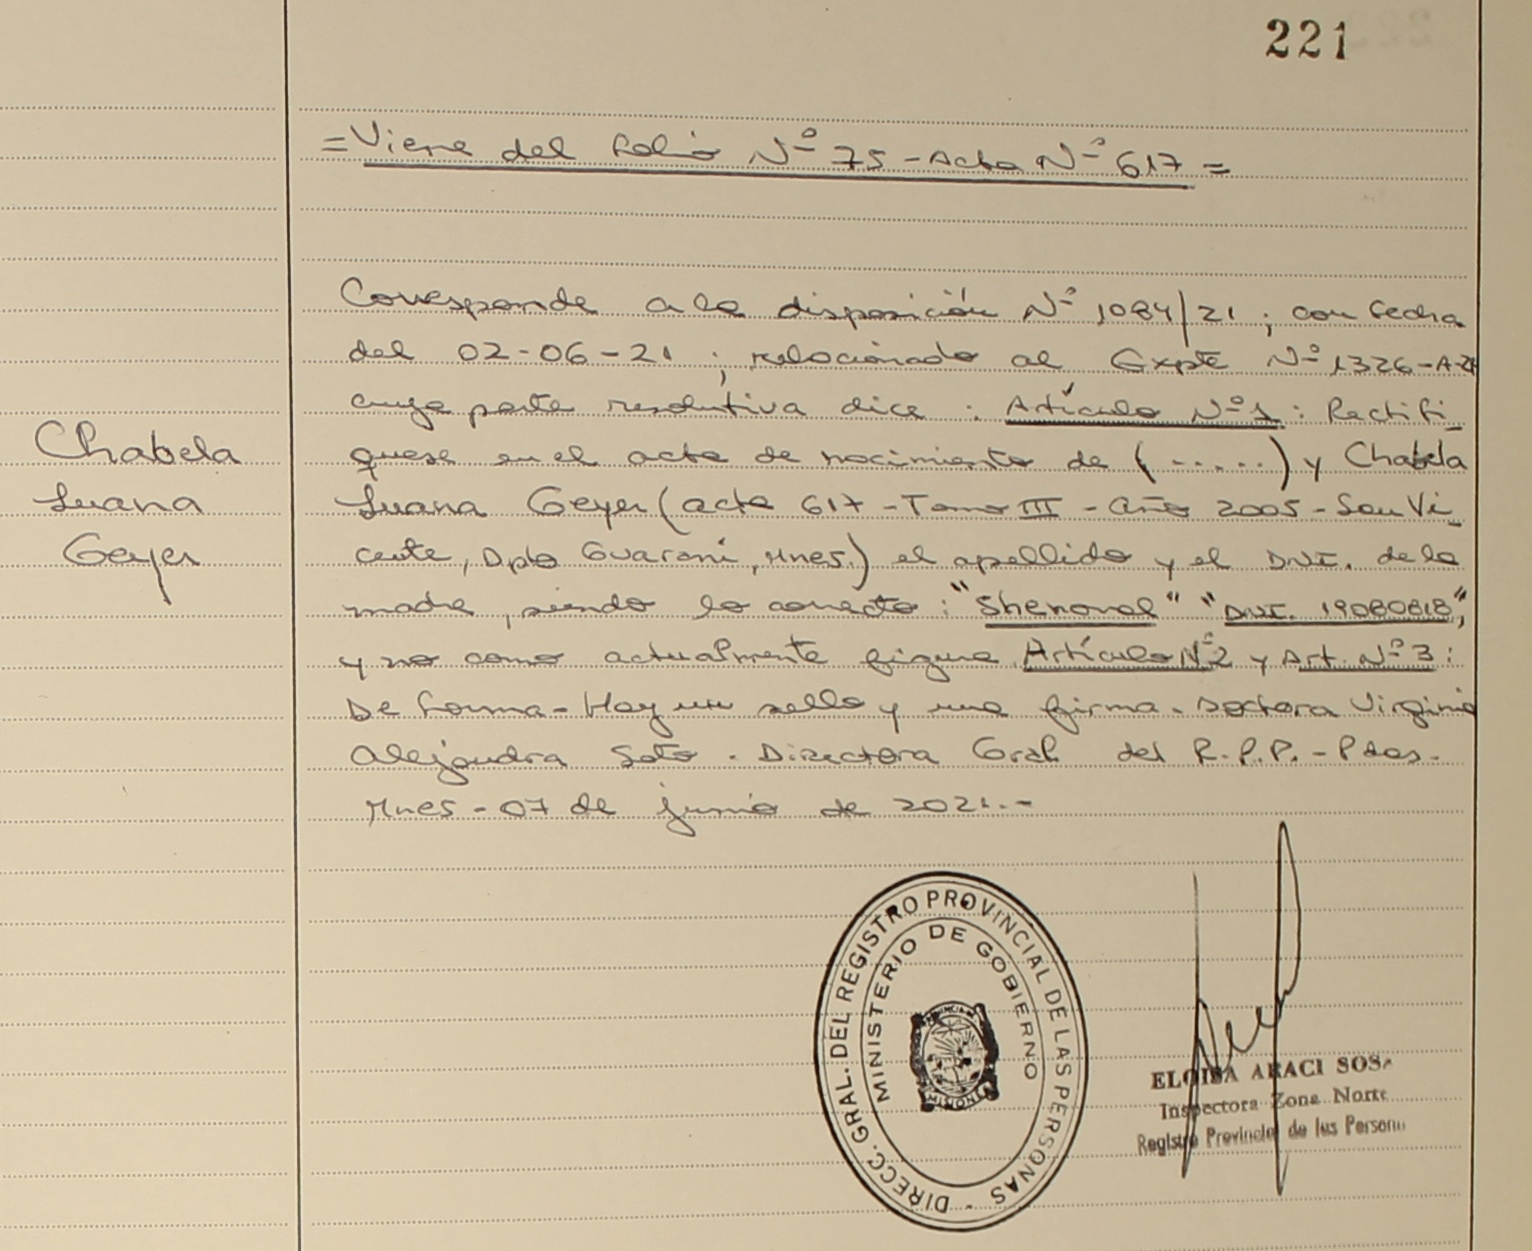 221
=Viene del folio Nº 75 - Acta Nº 617=
Corresponde a la disposición Nº 1084/21; con fecha
del 02-06-21; relacionado al Expte Nº 1326-A-21
cuya parte resolutiva dice: Artículo Nº1: Rectifi_
quese en el acta de nacimiento de (.....) y Chabela
Luana Geyer (acta 617 - Tomo III - Año 2005 - San Vi_
cente, Dpto Guaraní, Mnes.) el apellido y el DNI. de la
madre, siendo lo correcto: "Shenoval" "DNI. 19080818",
y no como actualmente figura Artículo Nº2 y Art. Nº 3:
De forma - Hay un sello y una firma. Doctora Virginia
Alejandra Soto. Directora Gral del R.P.P. - Pdas.
Mnes - 07 de junio de 2021.-
Chabela
Luana
Geyer
DIRECC. GRAL. DEL REGISTRO PROVINCIAL DE LAS PERSONAS -
MINISTERIO DE GOBIERNO
PROVINCIA
MISIONES
ELOISA ARACI SOSA
Inspectora Zona Norte
Registro Provincial de las Person